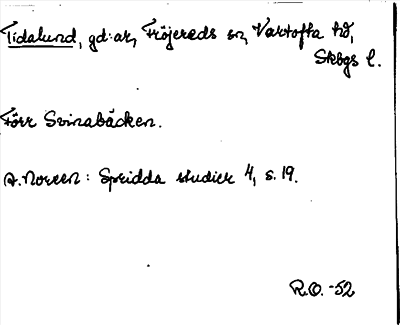 Tidalund, gd:ar, Fröjereds sn, Vartofta hd,
Skbgs l.
Förr Svinabäcken.
A. Noreen: Spridda studier 4, s. 19.
R.O. -52